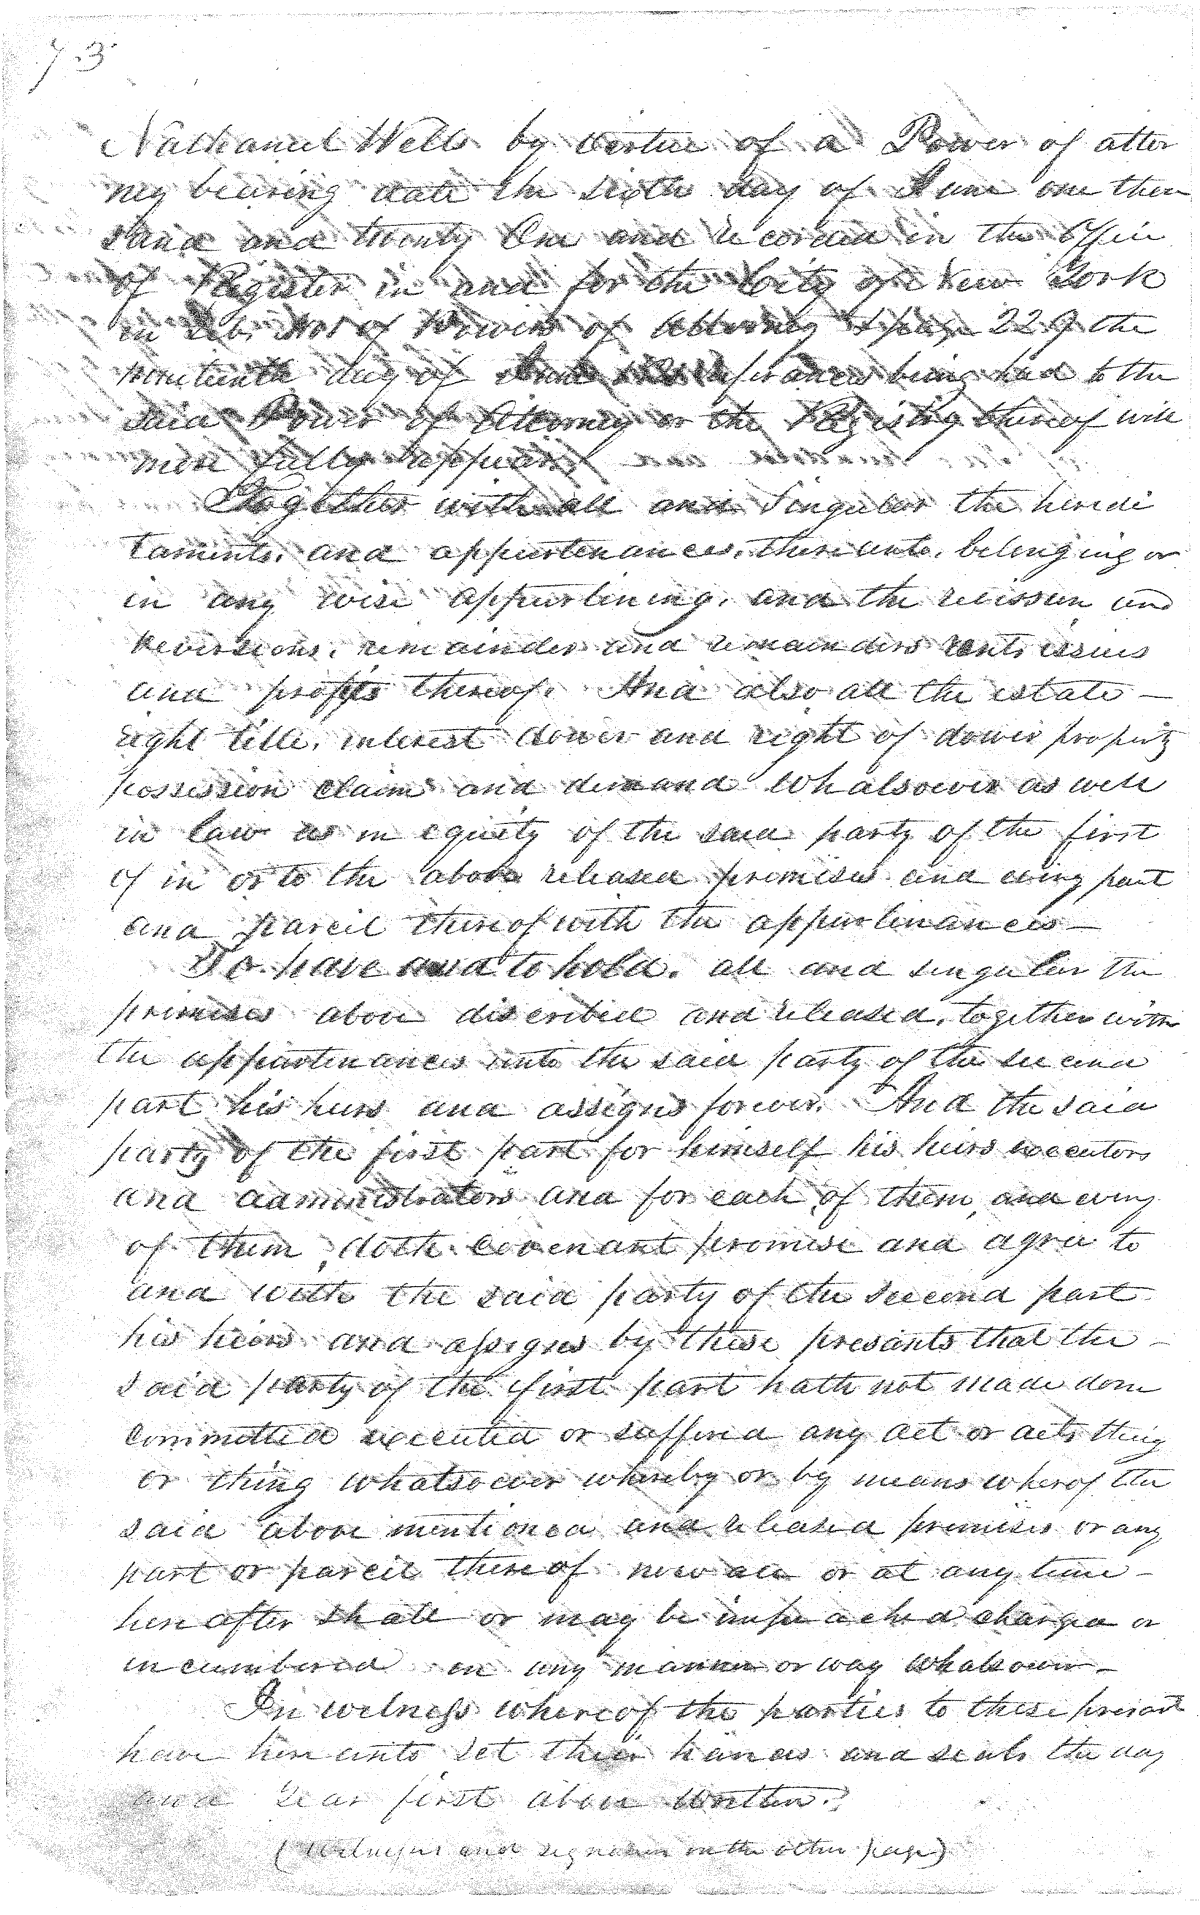 73
Nathaniel Wells by vertue of a Power of atter
ney bearing date the sixth day of June one thou
sand and twenty One and recorded in the Office
of Register in and for the City of New York
in Lib. of Powers of Attorney page 229 the
nineteenth day of June being had to the
said Power of Attorney or the Registry thereof will
more fully appear
Together with all and Singular the heredi
taments, and appurtenances, thereunto, belonging or
in any wise appurtining, and the and
Reversions, remainder and remainders rents issues
and profits thereof. And also all the estate —
right title, interest dower and right of dower property
possession claim and demand Whatsoever as well
in law as in equity of the said party of the first
of in or to the above released premises and every part
and parcil thereof with the appurtinances —
To have and to hold, all and singular the
premises above discribed and released, together with
the appurtenances unto the said party of the second
part his heirs and assigns forever. And the said
party of the first part for himself his heirs executors
and administrators and for each of them, and every
of them, doth covenant promise and agree to
and with the said party of the second part
his heirs and assigns by these presants that the —
said party of the first part hath not made done
committed executed or suffered any act or acts thing
or thing whatsoever whereby or by means wherof the
said above mentioned and released premises or any
part or parcil thereof now are or at any time —
here after shall or may be impeached charged or
incumbered in any manner or way whatsoever —
In witness whereof the parties to these presant
have here unto set their hands and seals the day
and Year first above written.
(Witnesses and on the other page)